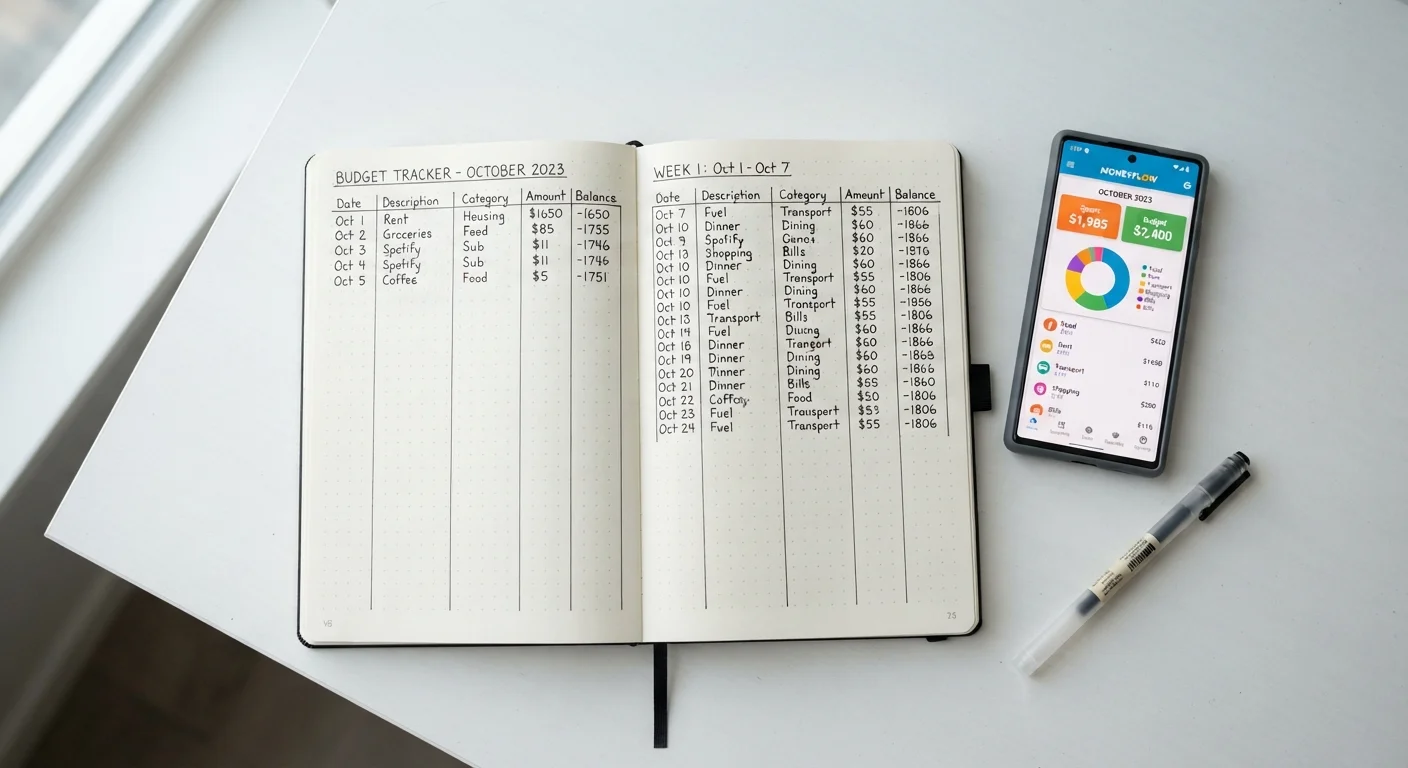 BUDGET TRACKER - OCTOBER 2023
Date Description Category Amount Balance
Oct 1 Rent Heusing $1650 -1650
Oct 2 Groceries Feed $85 -1755
Oct 3 Spotify Sub $11 -1746
Oct 4 Spetify Sub $11 -1746
Oct 5 Coffee Food $5 -1751
WEEK 1: Oct 1 - Oct 7
Date Description Category Amount Balance
Oct 7 Fuel Transport $55 -1606
Oct 10 Dinner Dining $60 -1866
Oct 9 Spotify $60 -1866
Oct 13 Shopping Bills $20
Oct 10 Dinner Dining $60 -1866
Oct 10 Fuel Transport $55 -1806
Oct 10 Dinner Dining $60 -1866
Oct 10 Fuel Trantport $55
Oct 13 Transport Bills $55 -1806
Oct 14 Fuel $60 -1866
Oct 16 Dinner $60 -1866
Oct 19 Dinner Dining $60
Oct 20 Dining $60 -1866
Oct 21 Dinner Bills -1860
Oct 22 Food -1806
Oct 23 Fuel Transport -1806
Oct 24 Fuel Transport $55 -1806
25
OCTOBER 2023
$1,985
$2,400
$110